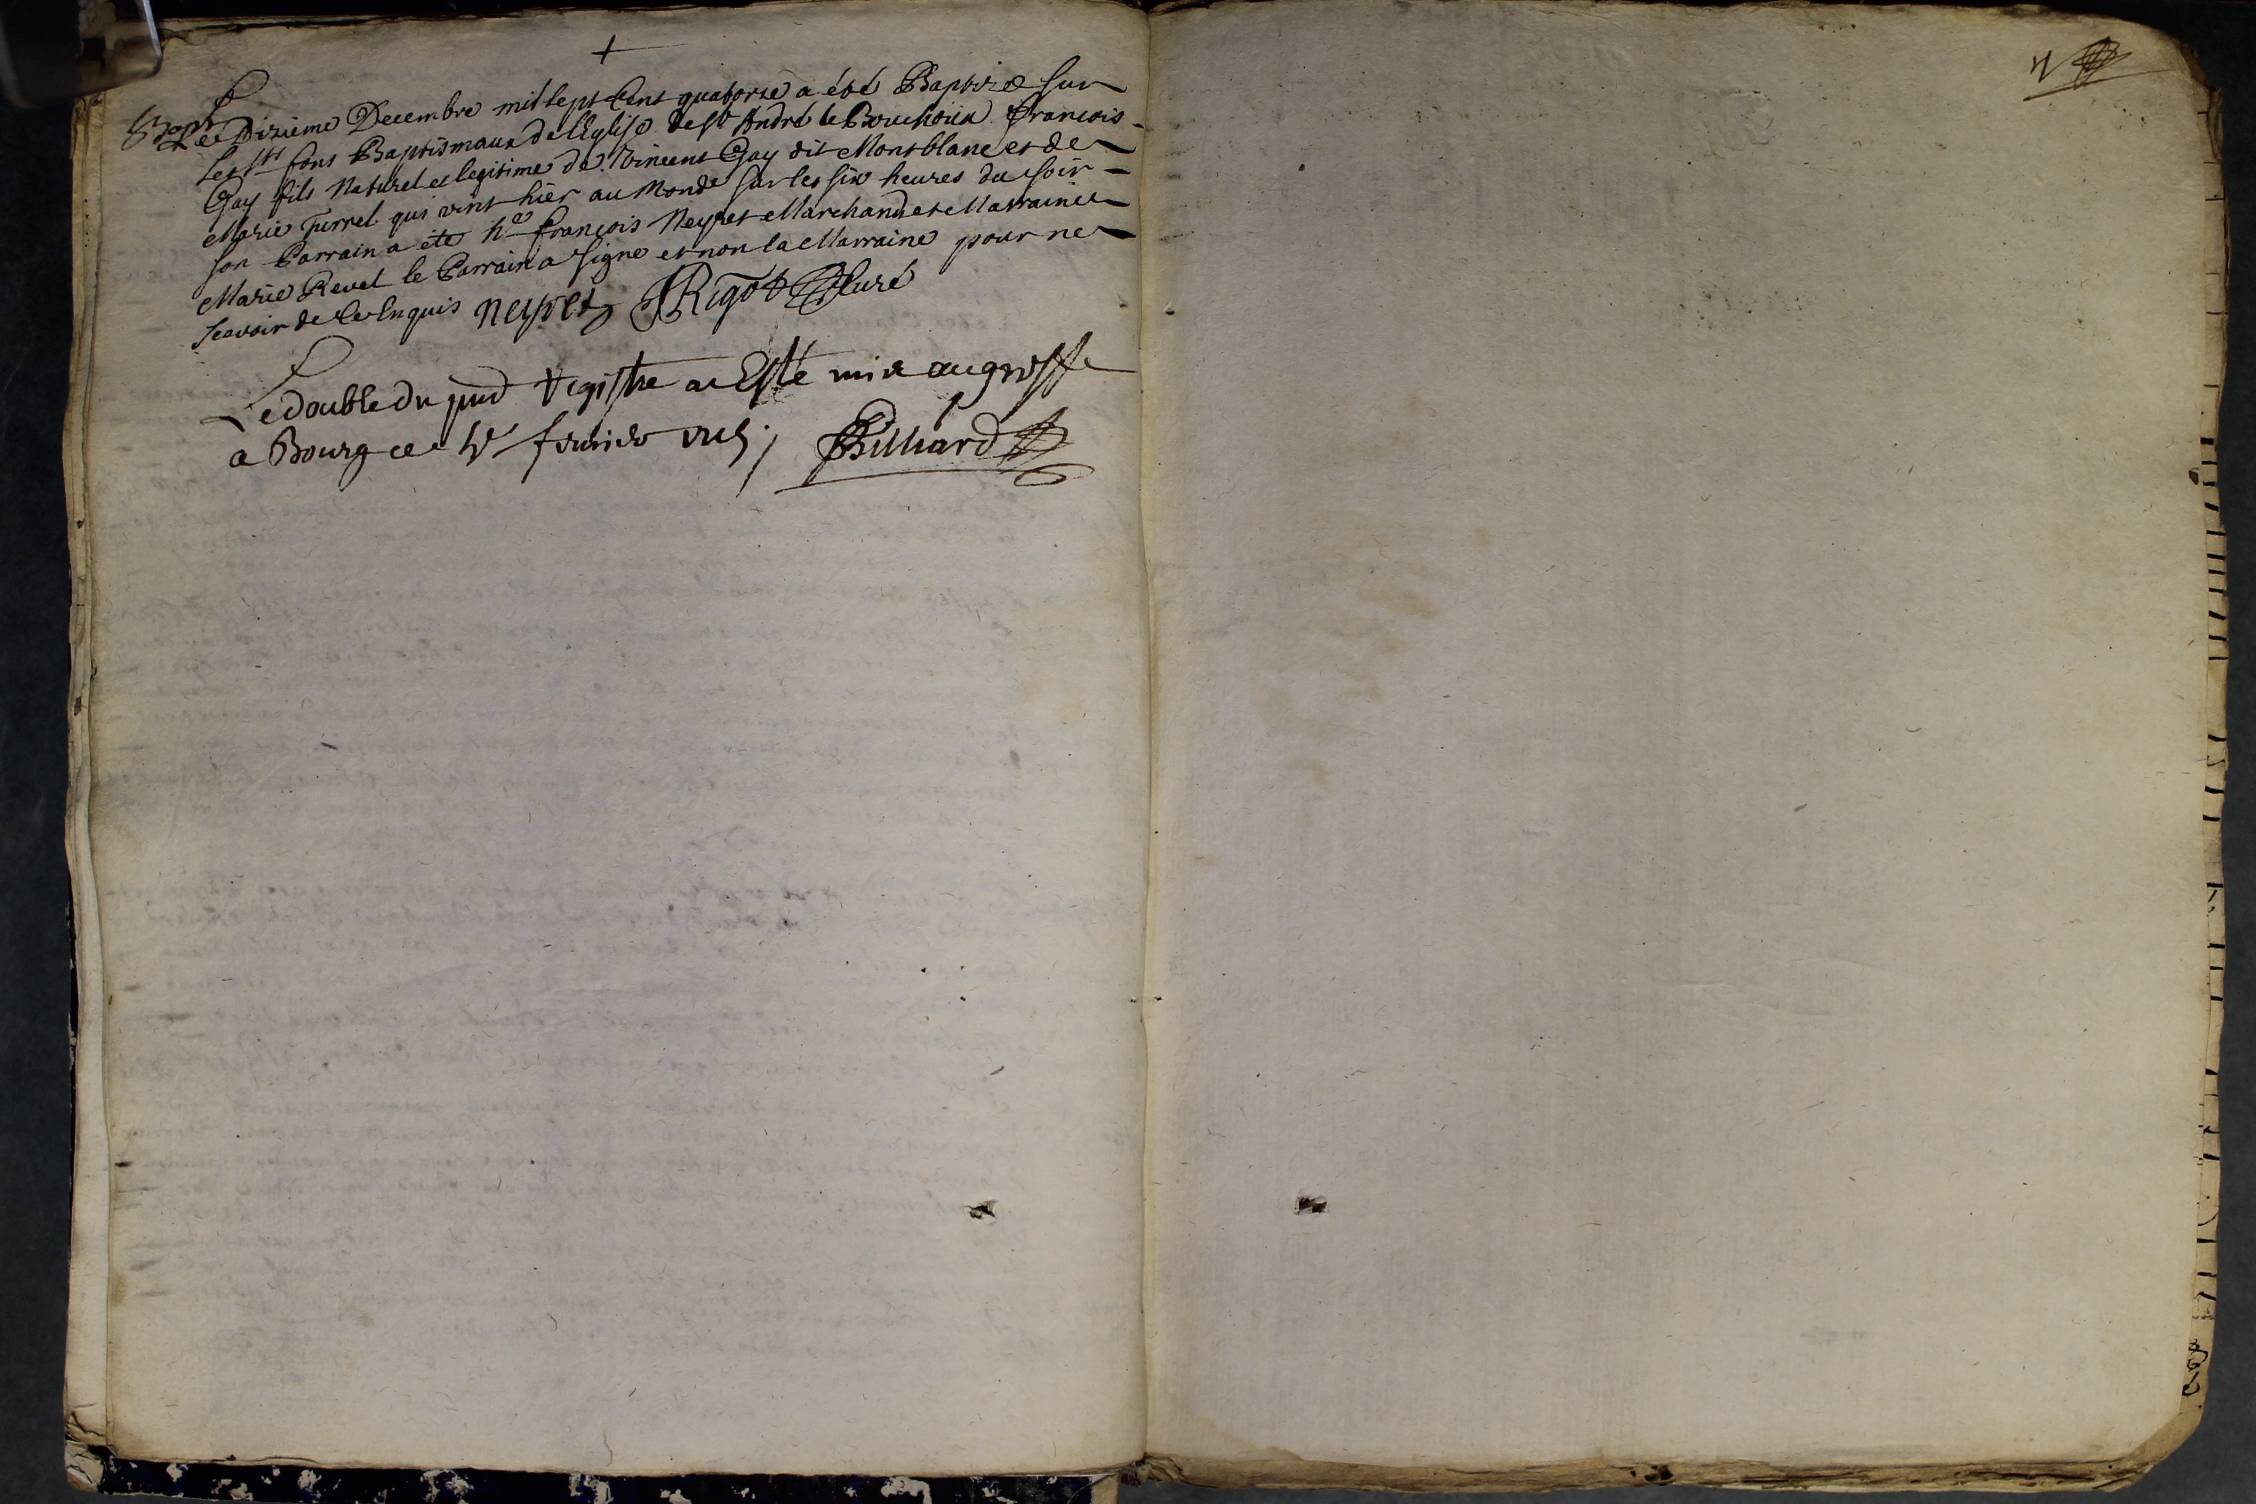 +
Bapt. Le Dizieme Decembre mil sept Cent quatorse a été Baptizé sur
les Sts fons Baptismaux de l'Eglise de St André le Bouchoux François
Gay fils Naturel et legitime de Vincent Gay dit Montblanc et de
Marie Turrel qui vint hier au Monde sur les six heures du soir
son Parrain a été he François Neyret Marchand et Marraine
Marie Revel le Parrain a signé et non la Marraine pour ne
sçavoir de ce Enquis neyret Rigot Curé
Le double du pnt registre a Esté mis au greffe
a Bourg ce fevrier Billiard